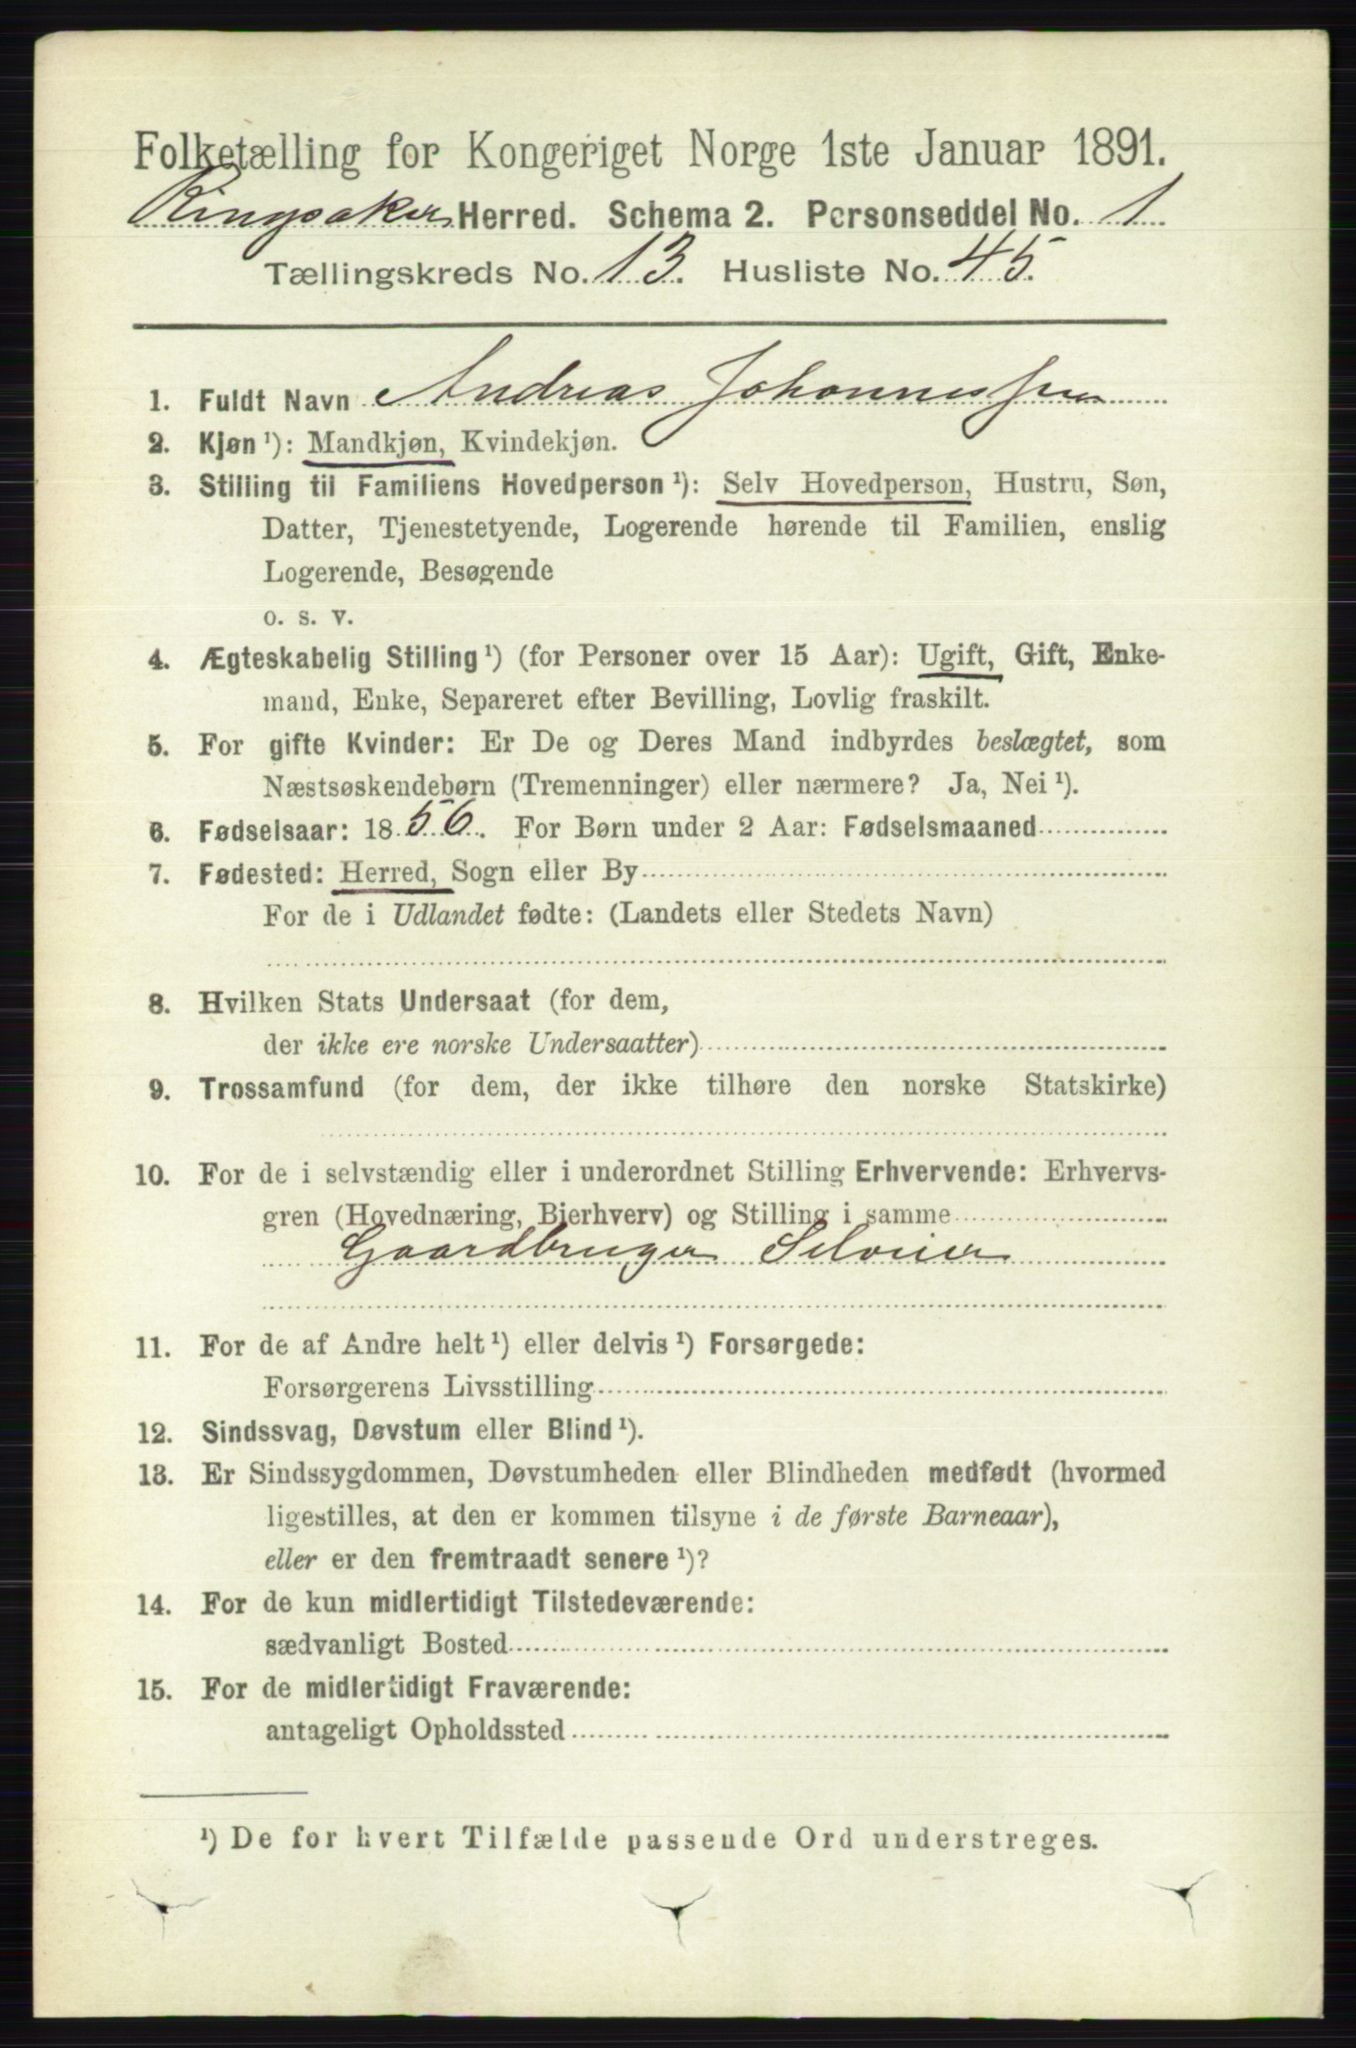 Folketælling for Kongeriget Norge 1ste Januar 1891.
Ringsaker Herred. Schema 2. Personseddel No. 1
Tællingskreds No. 13. Husliste No. 45.
1. Fuldt Navn Andreas Johannessen
2. Kjøn ¹): Mandkjøn, Kvindekjøn.
3. Stilling til Familiens Hovedperson ¹): Selv Hovedperson, Hustru, Søn,
Datter, Tjenestetyende, Logerende hørende til Familien, enslig
Logerende, Besøgende
o. s. v.
4. Ægteskabelig Stilling ¹) (for Personer over 15 Aar): Ugift, Gift, Enke-
mand, Enke, Separeret efter Bevilling, Lovlig fraskilt.
5. For gifte Kvinder: Er De og Deres Mand indbyrdes beslægtet, som
Næstsøskendebørn (Tremenninger) eller nærmere? Ja, Nei ¹).
6. Fødselsaar: 1856. For Børn under 2 Aar: Fødselsmaaned
7. Fødested: Herred, Sogn eller By
For de i Udlandet fødte: (Landets eller Stedets Navn)
8. Hvilken Stats Undersaat (for dem,
der ikke ere norske Undersaatter)
9. Trossamfund (for dem, der ikke tilhøre den norske Statskirke)
10. For de i selvstændig eller i underordnet Stilling Erhvervende: Erhvervs-
gren (Hovednæring, Bierhverv) og Stilling i samme
Gaardbruger Selveier
11. For de af Andre helt ¹) eller delvis ¹) Forsørgede:
Forsørgerens Livsstilling
12. Sindssvag, Døvstum eller Blind ¹).
13. Er Sindssygdommen, Døvstumheden eller Blindheden medfødt (hvormed
ligestilles, at den er kommen tilsyne i de første Barneaar),
eller er den fremtraadt senere ¹)?
14. For de kun midlertidigt Tilstedeværende:
sædvanligt Bosted
15. For de midlertidigt Fraværende:
antageligt Opholdssted
¹) De for hvert Tilfælde passende Ord understreges.